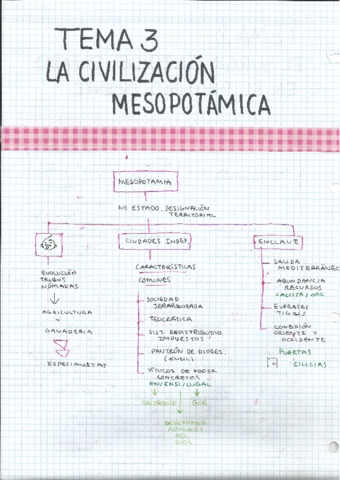 TEMA 3
LA CIVILIZACIÓN
MESOPOTÁMICA
MESOPOTAMIA
NO ESTADO, DESIGNACIÓN
TERRITORIAL
CIUDADES INDEP.
ENCLAVE
EVOLUCIÓN
TRIBUS
NÓMADAS
AGRICULTURA
Y
GANADERIA
ESPECIALISTAS
CARACTERÍSTICAS
COMUNES
SOCIEDAD
JERARQUIZADA
TEOCRÁTICA
SIST. REDISTRIBUTIVO
IMPUESTOS
PANTEÓN DE DIOSES
(ENLIL)
TÍTULOS DE PODER
CONCRETOS
EN/ENSI/LUGAL
SACERDOTE
GOB
DIOS
SALIDA
MEDITERRÁNEO
ABUNDANCIA
RECURSOS
EUFRATES
TIGRIS
CONEXIÓN
ORIENTE Y
OCCIDENTE
PUERTAS
CILICIAS